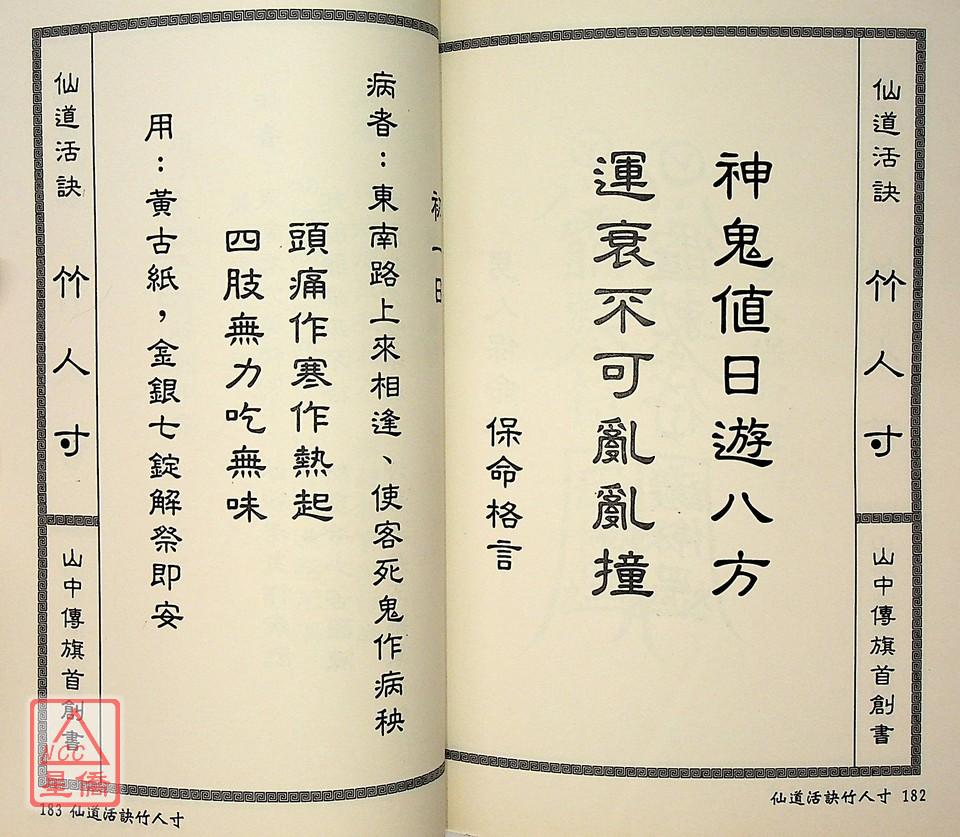 仙道活訣 竹人寸
山中傳旗首創書
神鬼值日遊八方
運衰不可亂亂撞
保命格言
仙道活訣竹人寸 182
初一日
病者：東南路上來相逢、使客死鬼作病秧
頭痛作寒作熱起
四肢無力吃無味
用：黃古紙，金銀七錠解祭即安
仙道活訣 竹人寸
山中傳旗首創書
183 仙道活訣竹人寸
NCC
星僑